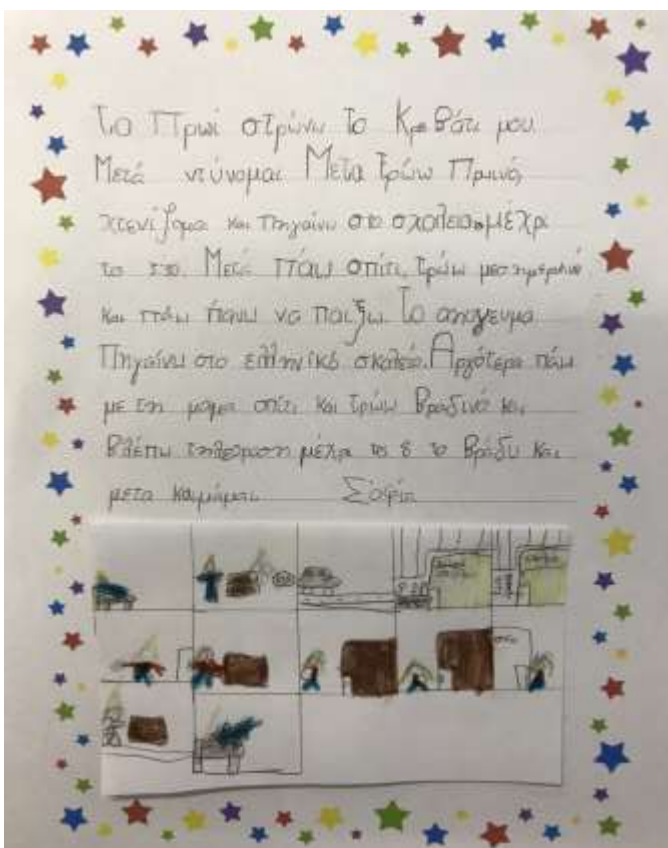 Το Πρωί στρώνω το Κρεβάτι μου.
Μετά ντύνομαι Μετα Τρώω Πρωινό,
χτενίζομαι και πηγαίνω στο σχολείο μέχρι
το Μετά πάω σπίτι, Τρώω μεσημεριανό
και πάω πάνω να παιξω. Το απογευμα
Πηγαίνω στο ελληνικό σχολείο. Αργότερα πάω
με τη μαμα σπίτι και Τρώω Βραδινό και
Βλέπω τηλεοραση μέχρι τις 8 το Βράδυ και
μετα κοιμάμαι Σοφία